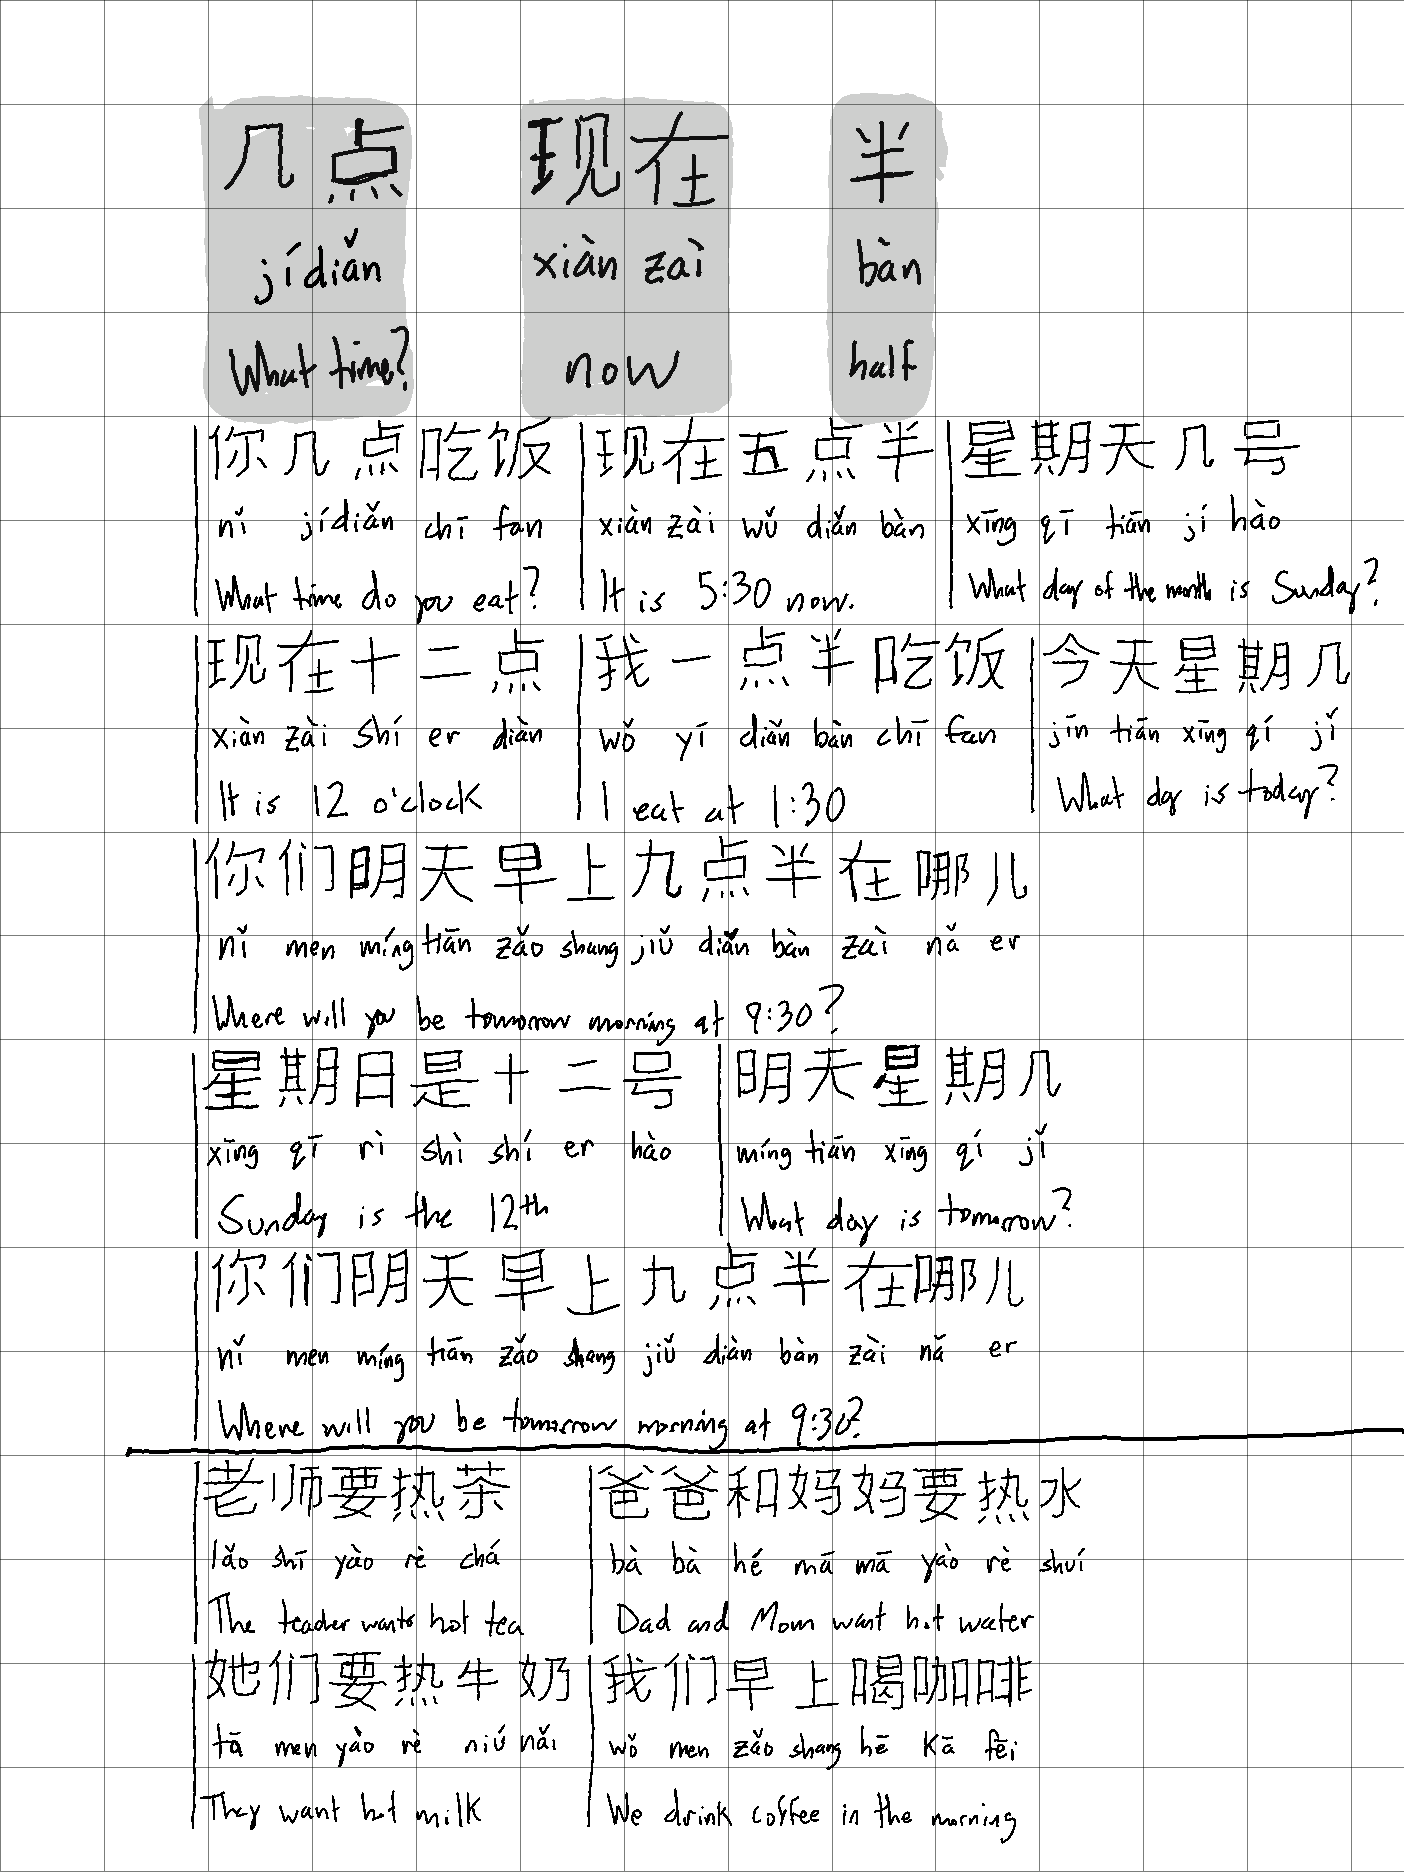 几点 现在 半
jídiǎn xiàn zaì bàn
What time? now half
你几点吃饭 现在五点半 星期天几号
nǐ jídiǎn chī fan xiàn zài wǔ diǎn bàn xīng qī tiān jí hào
What time do you eat? It is 5:30 now. What day of the month is Sunday?
现在十二点 我一点半吃饭 今天星期几
xiàn zài shí er diàn wǒ yī diǎn bàn chī fan jīn tiān xīng qí jǐ
It is 12 o'clock I eat at 1:30 What day is today?
你们明天早上九点半在哪儿
nǐ men míng tiān zǎo shang jiǔ diǎn bàn zaì nǎ er
Where will you be tomorrow morning at 9:30?
星期日是十二号 明天星期几
xīng qī rì shì shí er hào míng tiān xīng qí jǐ
Sunday is the 12th What day is tomorrow?
你们明天早上九点半在哪儿
nǐ men míng tiān zǎo shang jiǔ diàn bàn zài nǎ er
Where will you be tomorrow morning at 9:30?
老师要热茶 爸爸和妈妈要热水
lǎo shī yào rè chá bà bà hé mā mā yào rè shuí
The teacher wants hot tea Dad and Mom want hot water
她们要热牛奶 我们早上喝咖啡
tā men yào rè niú nǎi wǒ men zǎo shang hē kā fēi
They want hot milk We drink coffee in the morning